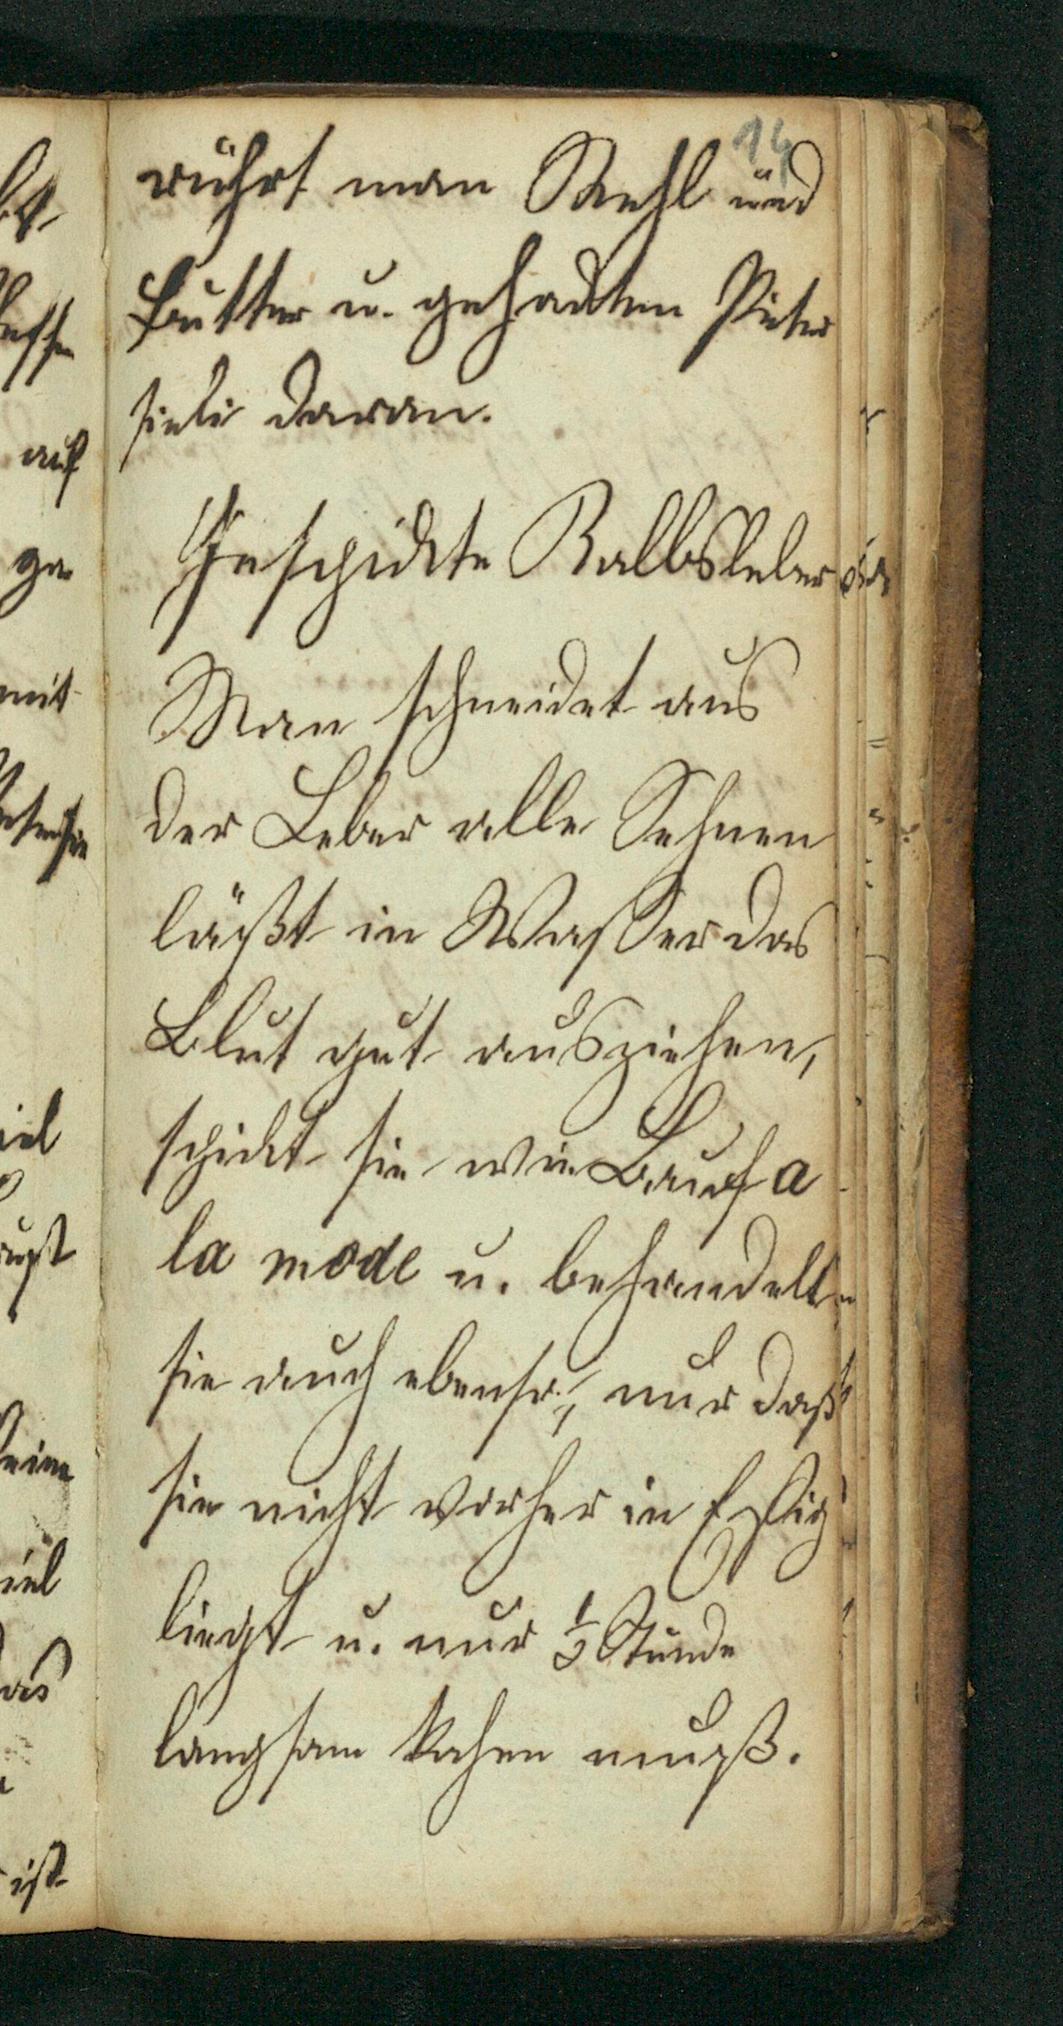 14
rührt man Mehl und
Butter u. gehackten Peter
sieli daran.
Geschickte Kalbsleber
Man schneidet aus
der Leber alle Sehnen
läßt in Waßer das
Blut gut ausziehen,
schickt sie wie Bauf a
la mode u. behandelt
sie auch ebenso, nur daß
sie nicht vorher in Eßig
liegt u. nur ½ Stunde
langsam kochen muß.
auf
mit
iel
eine
iel
das
ist